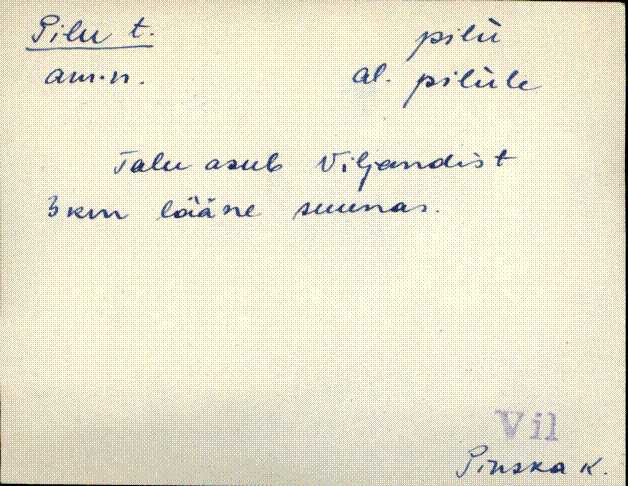 Pilu t. pilù
am.n. al. pilùle
Talu asub Viljandist
3 km lääne suunas.
Vil
Pinska K.